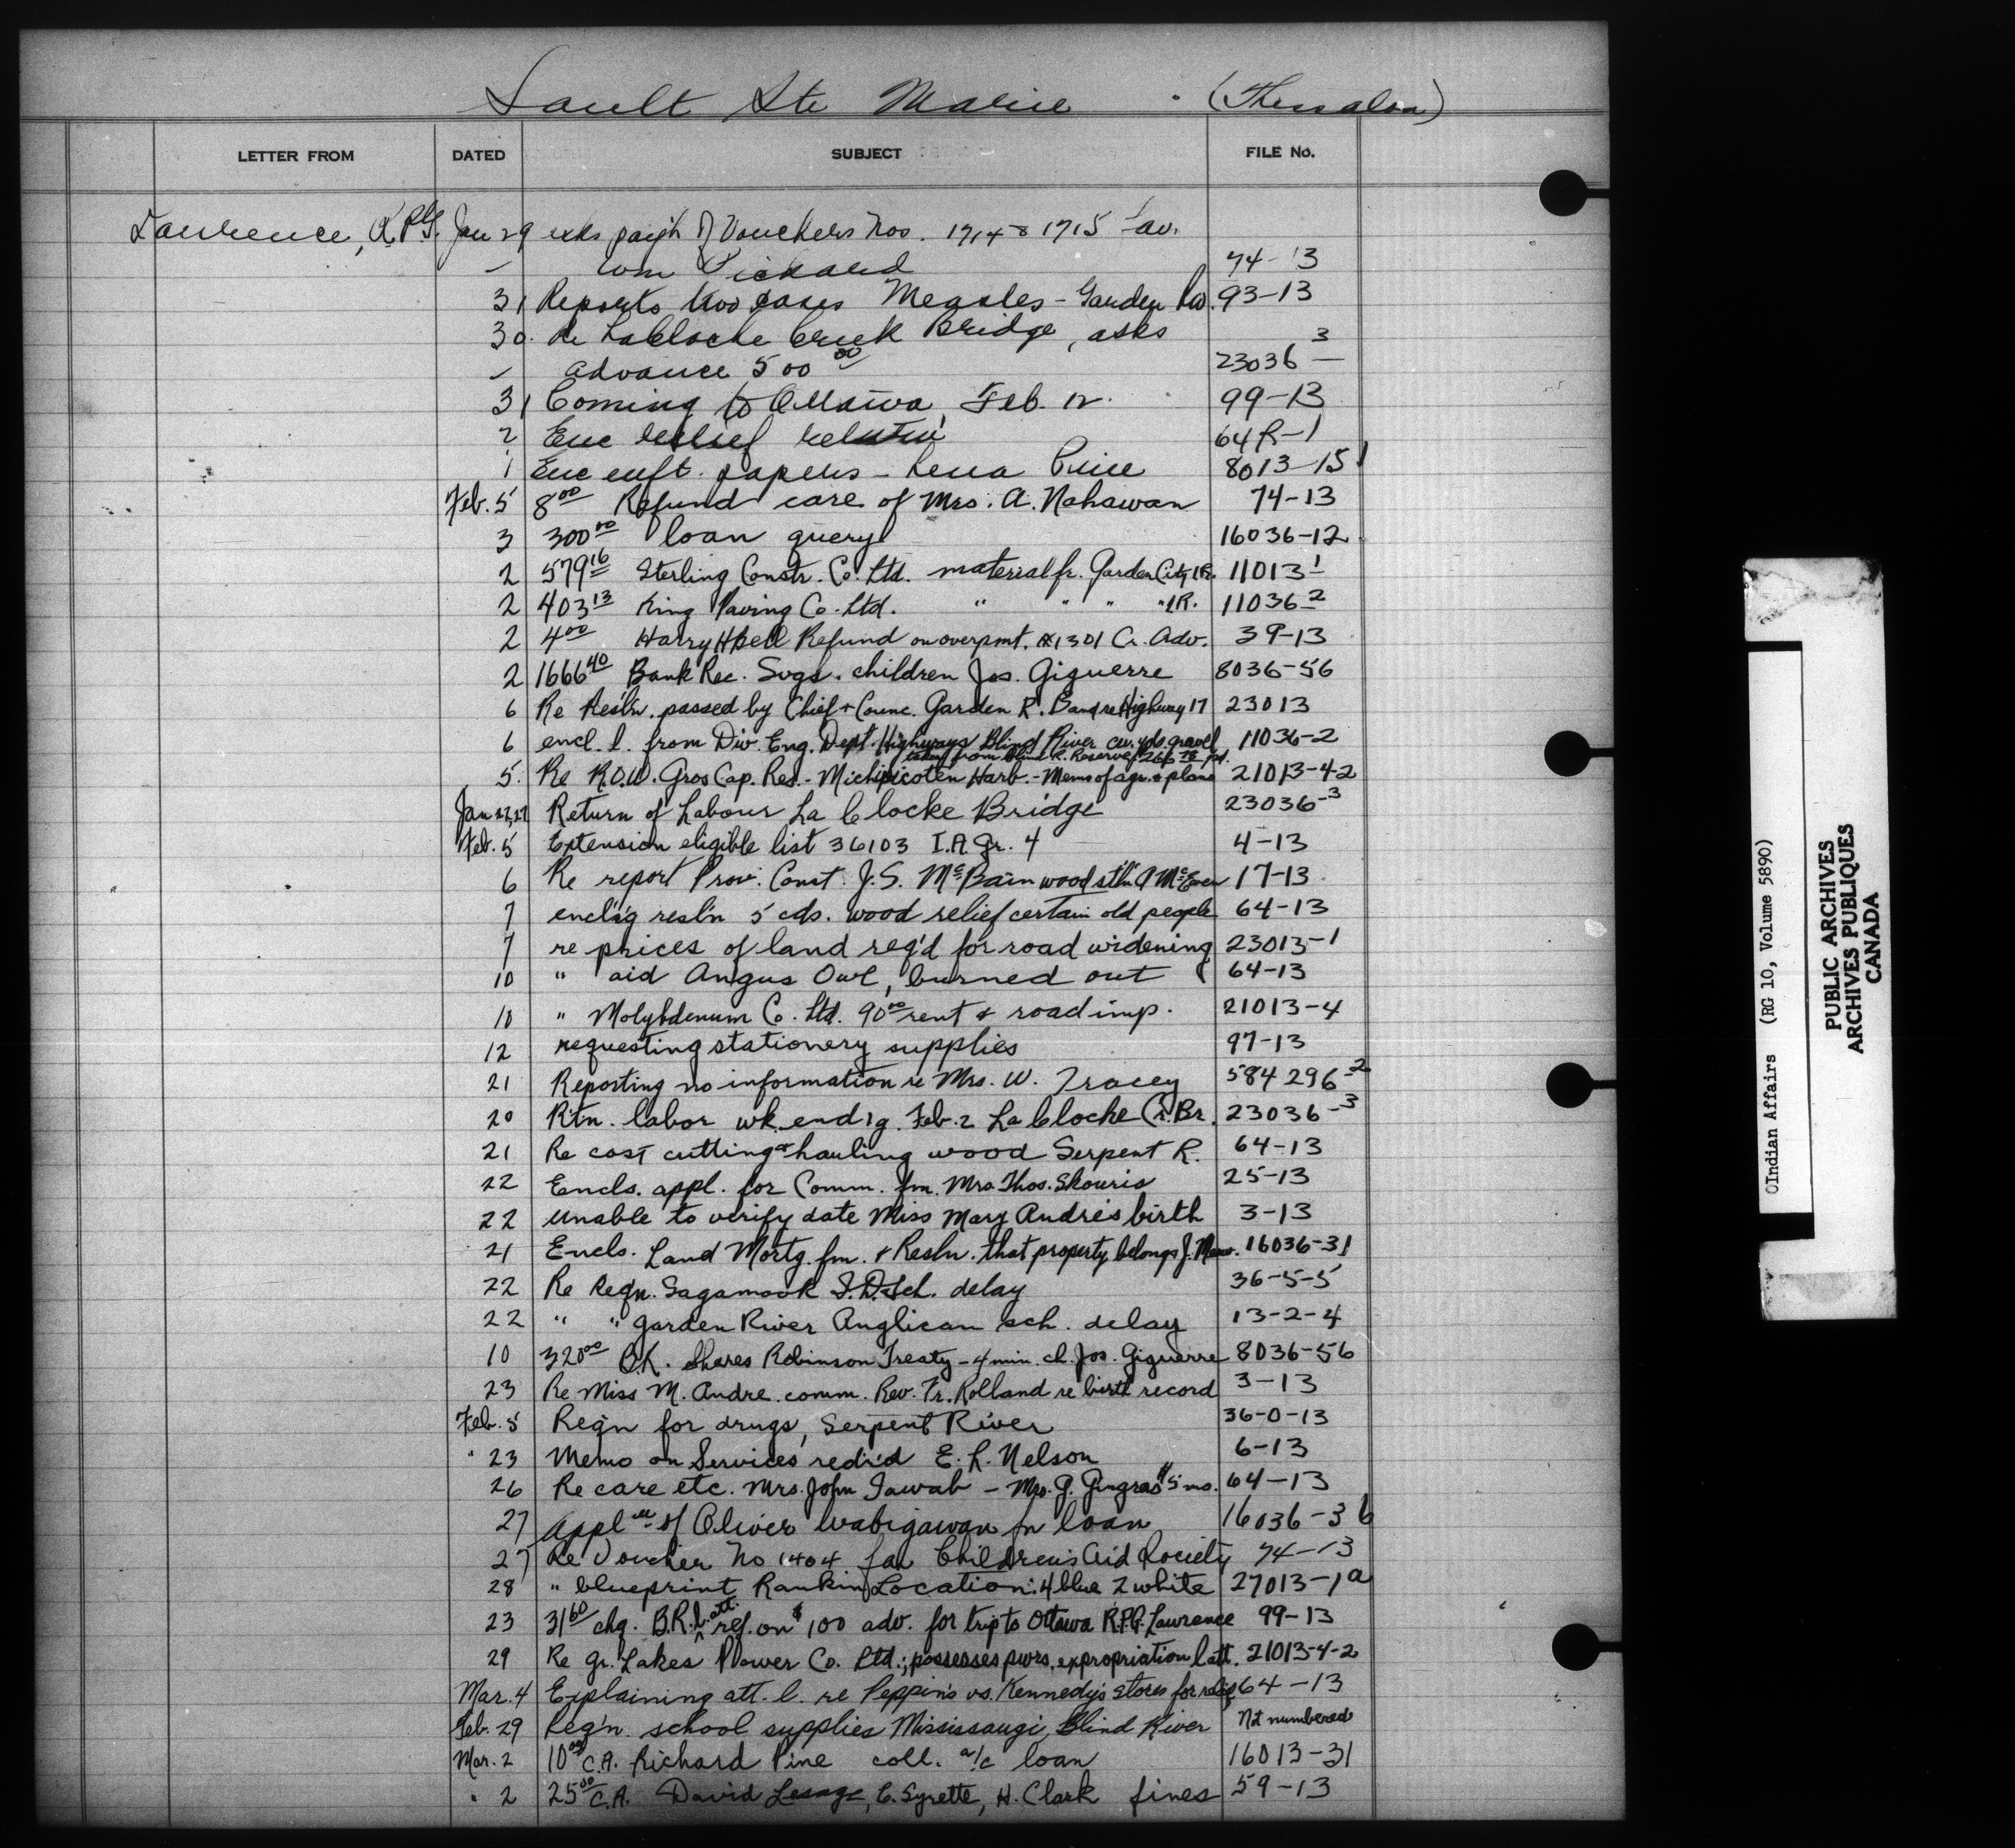 Sault Ste Marie (Thessalon)
LETTER FROM DATED SUBJECT FILE No.
Lawrence, R.P.G. Jan 29 asks paym't of Vouchers Nos. 1714 & 1715 fav.
Wm Pickard 74-13
31 Reports two cases Measles - Garden Riv. 93-13
30 Re LaCloche Creek Bridge, asks
advance 500 00 23036 3
31 Coming to Ottawa, Feb. 12. 99-13
2 Enc relief return 64R-1
1 Enc enft. papers - Lena Price 8013-15
Feb. 5 8 00 Refund care of Mrs. A. Nahawan 74-13
3 300 00 loan query 16036-12
2 579 16 Sterling Constr. Co. Ltd. material fr. Garden City I.R. 11013-1
2 403 13 King Paving Co. Ltd. " " " " I.R. 11036-2
2 4 00 Harry H Bell Refund on overpmt. 1301 Cr. Adv. 39-13
2 1666 40 Bank Rec. Svgs. children Jos. Giguerre 8036-56
6 Re Resl'n. passed by Chief + Counc. Garden R. Band re Highway 17 23013
6 encl. l. from Div. Eng. Dept. Highways Blind River cu. yds. gravel 11036-2
taken from Blind R. Reserve, 266 pd.
5. Re R.O.W. Gros Cap. Res. - Michipicoten Harb. - Memo of agr. & plans 21013-4-2
Jan 22, 27 Return of Labour La Clocke Bridge 23036-3
Feb. 5 Extension eligible list 36103 I.A. Gr. 4 4-13
6 Re report Prov. Const. J.S. McBain wood st'ln A McEwen 17-13
7 encls'g resl'n 5 cds. wood relief certain old people 64-13
7 re prices of land req'd for road widening 23013-1
10 " aid Angus Owl, burned out 64-13
10 " Molybdenum Co. Ltd. 90 00 rent & road imp. 21013-4
12 requesting stationery supplies 97-13
21 Reporting no information re Mrs. W. Tracey 584296-2
20 Rtn. labor wk. end'g. Feb. 2 La Cloche Cr. Br. 23036-3
21 Re cost cutting & hauling wood Serpent R. 64-13
22 Encls. appl. for Comm. fm. Mrs Thos. Skouris 25-13
22 Unable to verify date Miss Mary Andre's birth 3-13
21 Encls. Land Mortg. fm. & Resln. that property belongs J. 16036-31
22 Re Reqn. Sagamook I.D. Sch. delay 36-5-5
22 " " Garden River Anglican sch. delay 13-2-4
10 320 00 B.R. Shares Robinson Treaty - 4 min. ch. Jos. Giguerre 8036-56
23 Re Miss M. Andre comm. Rev. Fr. Rolland re birth record 3-13
Feb. 5 Req'n for drugs, Serpent River 36-0-13
" 23 Memo on Services red'r'd E. L. Nelson 6-13
26 Re care etc. Mrs. John Jawab - Mrs. G. Gingras $5 mo. 64-13
27 Appl'n of Oliver Wabigawan fn loan 16036-36
27 Re Voucher No 1404 fav Children's Aid Society 74-13
28 " blueprint Rankin Location: 4 blue 2 white 27013-1a
23 31 60 chq. B.R. l. att. ref. on $100 adv. for trip to Ottawa R.P.G. Lawrence 99-13
29 Re Gr. Lakes Power Co. Ltd.; possesses pwrs. expropriation l att. 21013-4-2
Mar. 4 Explaining att. l. re Peppin's vs. Kennedy's stores for relief 64-13
Feb. 29 Req'n. school supplies Mississaugi, Blind River Not numbered
Mar. 2 10 00 C.A. Richard Pine coll. a/c loan 16013-31
" 2 25 00 C.A. David Lesage, E. Syrette, H. Clark fines 59-13
©Indian Affairs (RG 10, Volume 5890)
PUBLIC ARCHIVES
ARCHIVES PUBLIQUES
CANADA